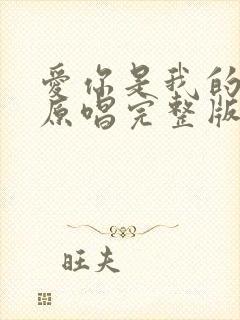 爱你是我的
原唱完整版
旺夫